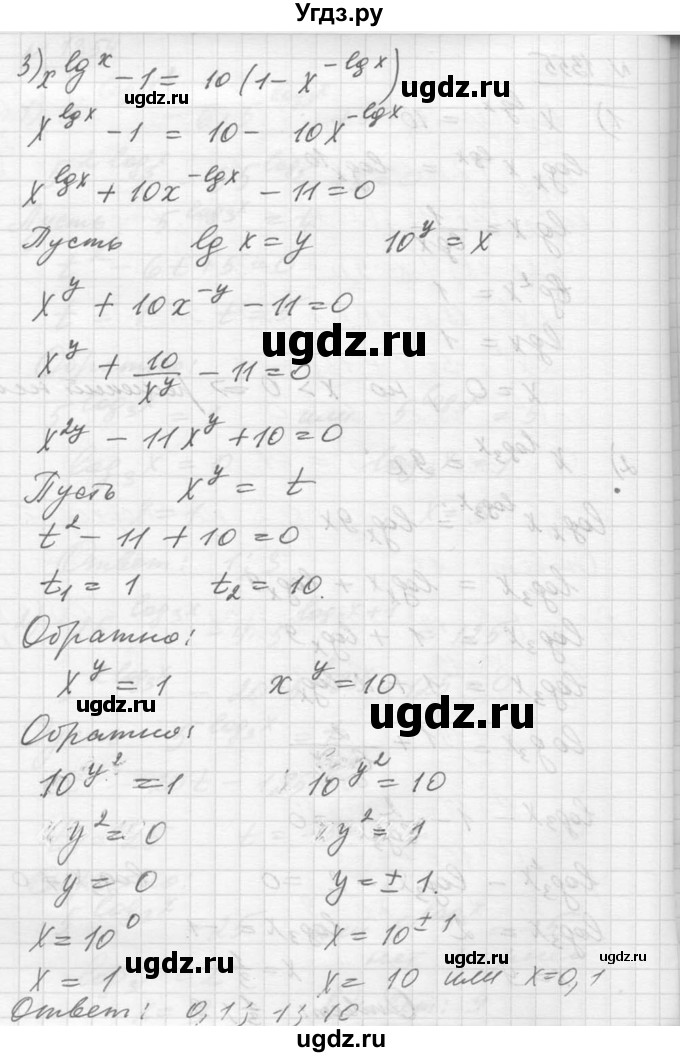 Угдз.ру
3) x^{lg x} - 1 = 10(1 - x^{-lg x})
ugdz.ru
x^{lg x} - 1 = 10 - 10x^{-lg x}
x^{lg x} + 10x^{-lg x} - 11 = 0
Пусть lg x = y 10^y = x
x^y + 10x^{-y} - 11 = 0
ugdz.ru
x^y + \frac{10}{x^y} - 11 = 0
x^{2y} - 11x^y + 10 = 0
Пусть x^y = t
t^2 - 11 + 10 = 0
t_1 = 1 t_2 = 10.
Обратно:
x^y = 1 x^y = 10
ugdz.ru
ugdz.ru
Обратно:
10^{y^2} = 1 10^{y^2} = 10
y^2 = 0 y^2 = 1
y = 0 y = ± 1.
x = 10^0 x = 10^{±1}
ugdz.ru
ugdz.ru
x = 1 x = 10 или x = 0,1
Ответ: 0,1; 1; 10
ugdz.ru